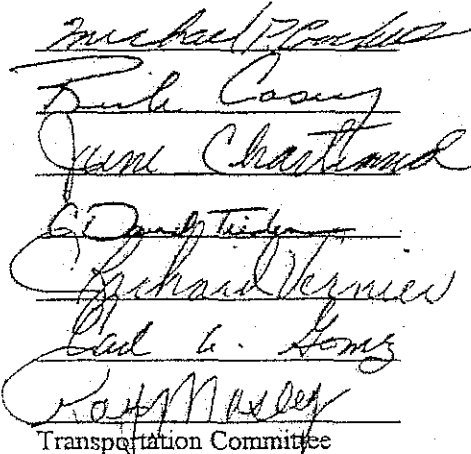 Michael P.
Casey
June Chartrand
G David Tieden
Richard Vernier
A. Gomez
Ray Mosley
Transportation Committee